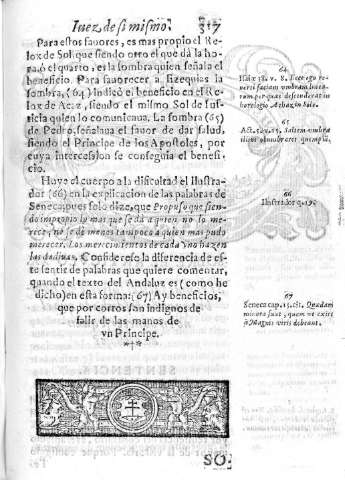 Iuez, de si mismo. 317
Para estos fauores, es mas propio el Re-
lox de Sol que siendo otro el que dà la ho-
ra, ò el quarto, es la sombra quien señala el
beneficio. Para fauorecer a Ezequias la
sombra, (64) Indicò el beneficio en el Re-
lox de Acaz, siendo el mismo Sol de Ius-
ticia quien lo comunicaua. La sombra (65)
de Pedro, señalaua el fauor de dar salud,
siendo el Principe de los Apostoles, por
cuya intercession se conseguia el benefi-
cio.
Huye el cuerpo a la dificultad el Ilustra-
dor (66) en la explicacion de las palabras de
Seneca, pues solo dize, que Propuso que sien-
do impropio lo mas que se dà a quien no lo me-
rece, no se dè menos tampoco a quien mas pudo
merecer. Los merecimientos de cada vno hazen
las dadiuas. Considerese la diferencia de es-
te sentir de palabras que quiere comentar,
quando el texto del Andaluz es (como he
dicho) en esta forma: (67) Ay beneficios,
que por cortos son indignos de
salir de las manos de
vn Principe.
64
Isaiæ 38. v. 8. Ecce ego re-
uerti faciam vmbram linea-
rum per quas descenderat in
horologio Achaz in Sole.
65
Act. 5. v. 15. Saltem vmbra
illius obumbraret quemquã.
66
Ilustrador q. 19.
67
Seneca cap. 15. cit. Quædam
minora sunt, quam vt exire
à Magnis viris debeant.
SO-